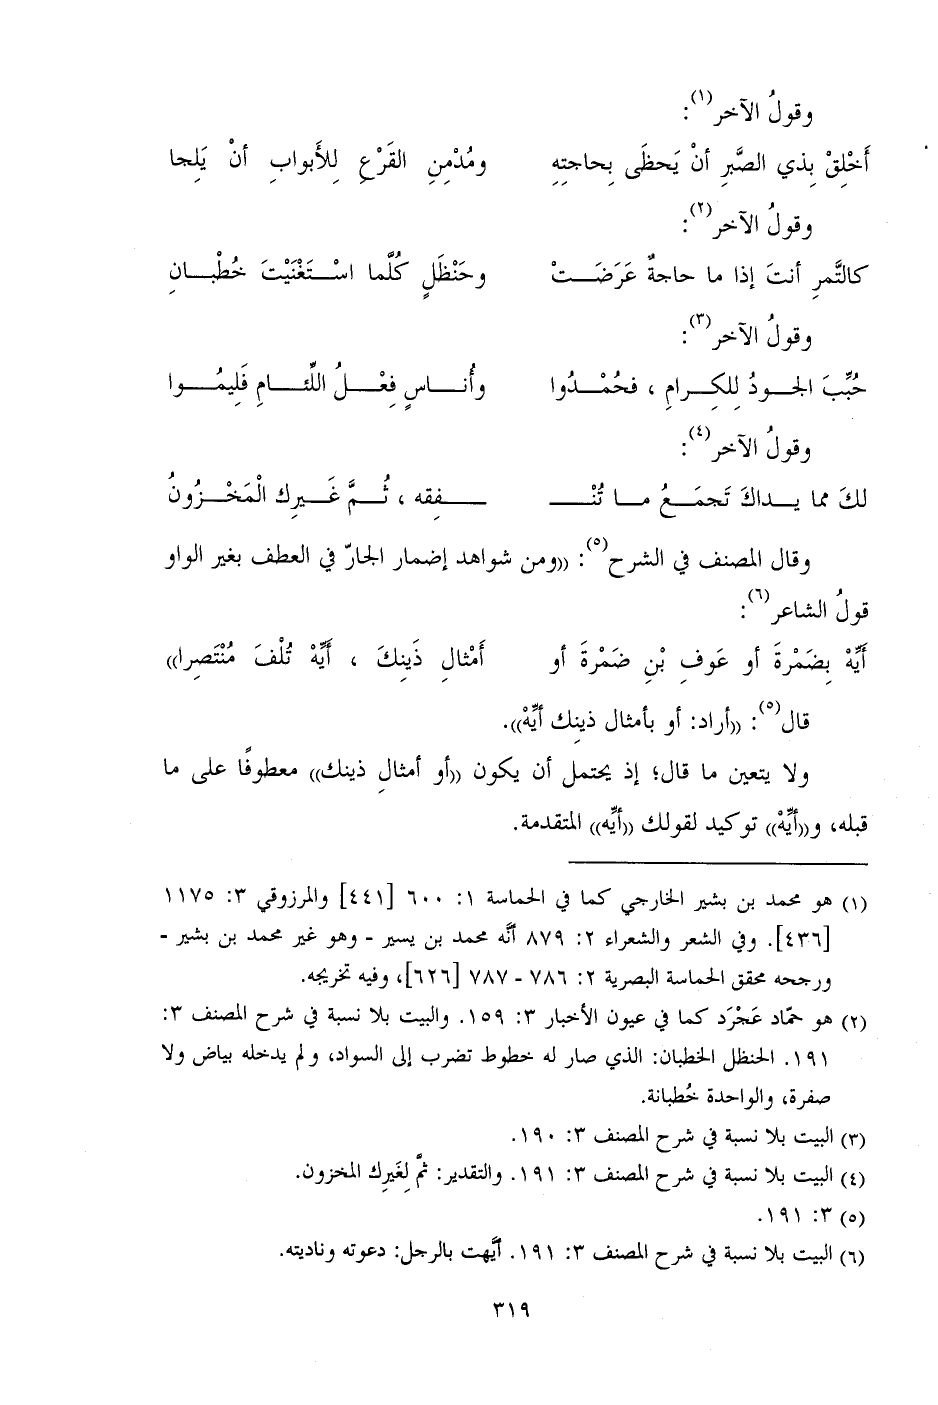 وقولُ الآخر(١):
أَخْلِقْ بِذي الصَّبرِ أنْ يَحظَى بِحاجتِهِ ومُدْمِنِ القَرْعِ لِلأَبوابِ أنْ يَلِجا
وقولُ الآخر(٢):
كالتَّمرِ أنتَ إذا ما حاجةٌ عَرَضَـــتْ وحَنْظَلٍ كُلَّما اسْـــتَغْنَيْتَ خُطْبـــانِ
وقولُ الآخر(٣):
حُبِّبَ الجـــودُ لِلكِـــرامِ ، فحُمْـــدُوا وأُنـــاسٍ فِعْـــلُ اللِّئـــامِ فَلِيمُـــوا
وقولُ الآخر(٤):
لكَ مما يـــداكَ تَجمَـــعُ مـــا تُنْـــ ـــفِقه ، ثُـــمَّ غَـــيرِك الْمَخْـــزُونُ
وقال المصنف في الشرح(٥): ((ومن شواهد إضمار الجارّ في العطف بغير الواو
قولُ الشاعر(٦):
أَيِّهْ بِضَمْرةَ أو عَوفِ بْنِ ضَمْرةَ أو أَمْثالِ ذَينِكَ ، أَيِّهْ تُلْفَ مُنْتَصِرا))
قال(٥): ((أراد: أو بأمثال ذينِك أَيِّهْ)).
ولا يتعين ما قال؛ إذ يحتمل أن يكون ((أو أمثالِ ذينك)) معطوفًا على ما
قبله، و((أَيِّهْ)) توكيد لقولك ((أَيِّه)) المتقدمة.
(١) هو محمد بن بشير الخارجي كما في الحماسة ١: ٦٠٠ [٤٤١] والمرزوقي ٣: ١١٧٥
[٤٣٦]. وفي الشعر والشعراء ٢: ٨٧٩ أنَّه محمد بن يسير - وهو غير محمد بن بشير -
ورجحه محقق الحماسة البصرية ٢: ٧٨٦ - ٧٨٧ [٦٢٦]، وفيه تخريجه.
(٢) هو حمّاد عَجْرَد كما في عيون الأخبار ٣: ١٥٩. والبيت بلا نسبة في شرح المصنف ٣:
١٩١. الحنظل الخطبان: الذي صار له خطوط تضرب إلى السواد، ولم يدخله بياض ولا
صفرة، والواحدة خُطبانة.
(٣) البيت بلا نسبة في شرح المصنف ٣: ١٩٠.
(٤) البيت بلا نسبة في شرح المصنف ٣: ١٩١. والتقدير: ثمَّ لِغَيرِك المخزون.
(٥) ٣: ١٩١.
(٦) البيت بلا نسبة في شرح المصنف ٣: ١٩١. أيَّهت بالرجل: دعوته وناديته.
٣١٩